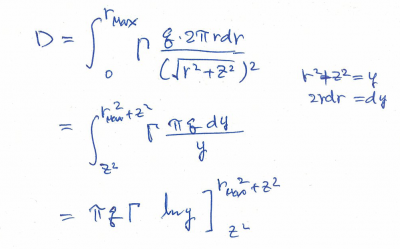 D = ∫₀^{r_Max} Γ \frac{q · 2π r dr}{(\sqrt{r² + z²})²}
r² + z² = y
2rdr = dy
= ∫_{z²}^{r_Max² + z²} Γ \frac{π q dy}{y}
= π q Γ ln y ]_{z²}^{r_Max² + z²}